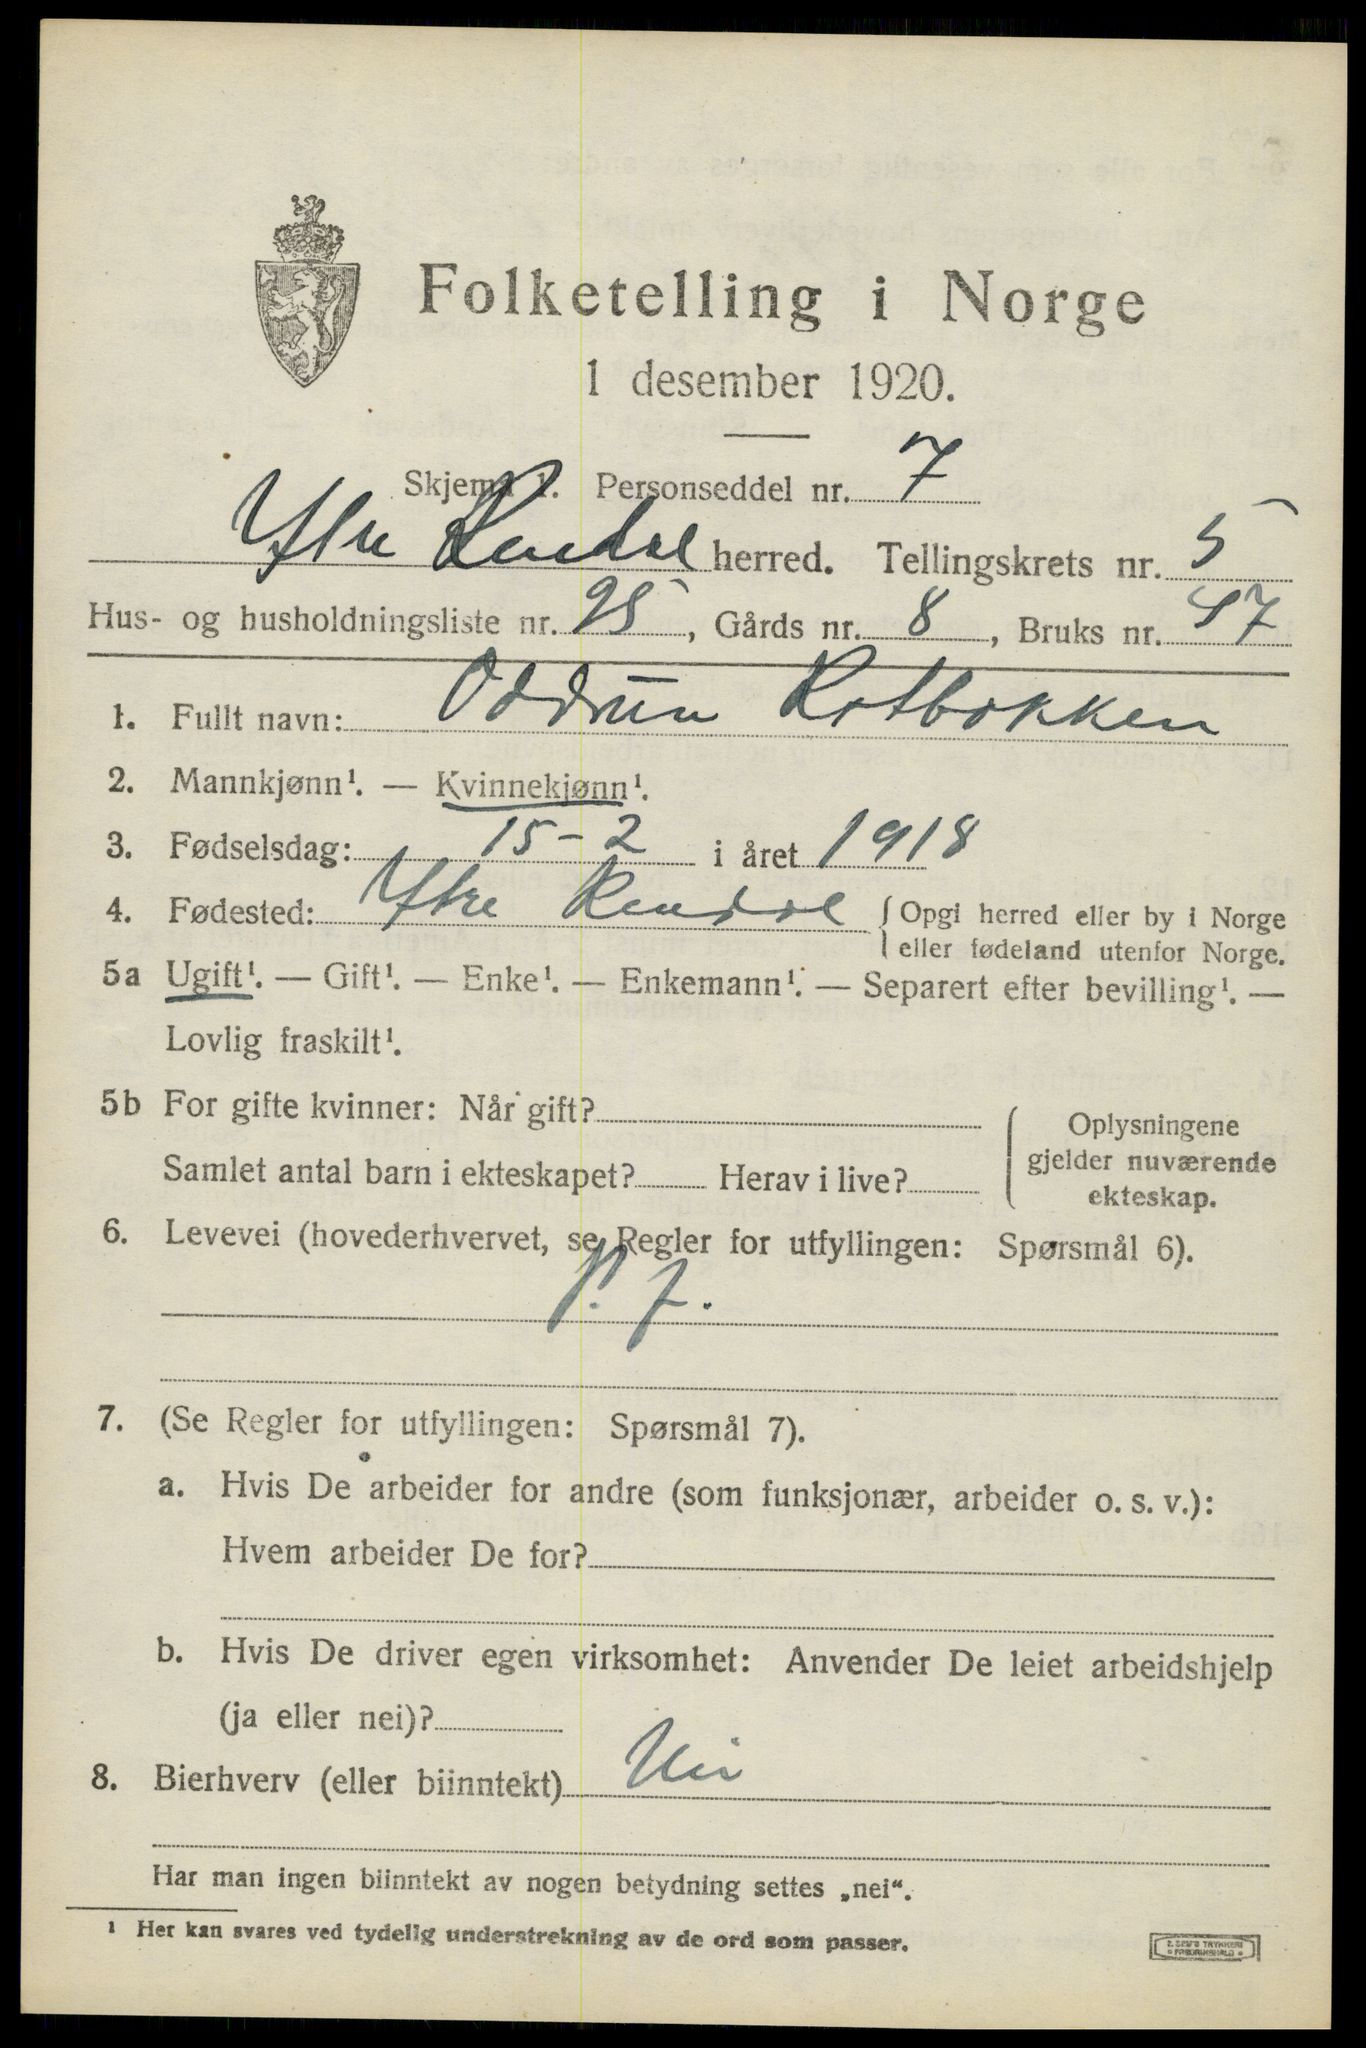 Folketelling i Norge
1 desember 1920.
Skjema 1. Personseddel nr. 7
Ytre Rendal herred. Tellingskrets nr. 5
Hus- og husholdningsliste nr. 25, Gårds nr. 8, Bruks nr. 47
1. Fullt navn: Oddrun Rotbakken
2. Mannkjønn¹. — Kvinnekjønn¹.
3. Fødselsdag: 15-2 i året 1918
4. Fødested: Ytre Rendal { Opgi herred eller by i Norge
eller fødeland utenfor Norge.
5a Ugift¹. — Gift¹. — Enke¹. — Enkemann¹. — Separert efter bevilling¹. —
Lovlig fraskilt¹.
5b For gifte kvinner: Når gift?
Samlet antal barn i ekteskapet? Herav i live?
Oplysningene
gjelder nuværende
ekteskap.
6. Levevei (hovederhvervet, se Regler for utfyllingen: Spørsmål 6).
7. (Se Regler for utfyllingen: Spørsmål 7).
a. Hvis De arbeider for andre (som funksjonær, arbeider o. s. v.):
Hvem arbeider De for?
b. Hvis De driver egen virksomhet: Anvender De leiet arbeidshjelp
(ja eller nei)?
8. Bierhverv (eller biinntekt) Nei
Har man ingen biinntekt av nogen betydning settes „nei“.
¹ Her kan svares ved tydelig understrekning av de ord som passer.